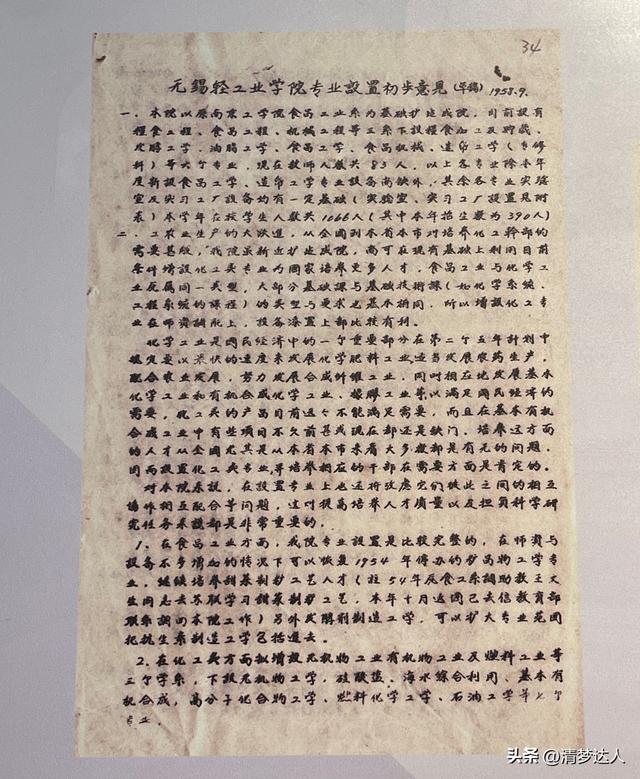 34
无锡轻工业学院专业設置初步意見(草稿) 1958.9.
一、本院以原南京工学院食品工业系为基础扩建成院，目前設有
糧食工程、食品工程、机械工程等三系下設糧食加工及貯藏、
发酵工学、油脂工学、食品工学、食品机械、造纸工学(专修
科)等六个专业，现在教师人数共83人，以上各专业除本年
度新設食品工学、造纸工学专业設备尚缺外，其余各专业实驗
室及实习工厂設备均有一定基础(实驗室、实习工厂設置見附
表)本学年在校学生人数共1066人(其中本年招生数为390人)
二、工农业生产的大跃进，从全國到本省本市对培养化工幹部的
需要甚殷，我院虽新近扩建成院，尚可在现有基础上利用目前
条件增設化工类专业为國家培养更多人才，食品工业与化学工
业反属同一类型，大部分基础课与基础技術課(如化学系統、
工程系統的課程)的类型与要求也基本相同，所以增設化工专
业在师資調配上，設备添置上都比較有利。
化学工业是國民经济中的一个重要部分在第二个五年計划中
規定要以最快的速度来发展化学肥料工业，适当发展农药生产，
配合农业发展，努力发展合成纤维工业，同时相应地发展基本
化学工业和有机合成化学工业、橡膠工业等以满足國民经济的
需要，化工类的产品目前远々不能满足需要，而且在基本有机
合成工业中有些項目不久前甚或现在都还是缺门、培养这方面
的人才从全國尤其是从本省本市来看大多数都是有无的问题、
因而設置化工类专业，培养相应的干部在需要方面是肯定的。
对本院来說，在設置专业上也还将攷虑它们彼此之间的相互
協作相互配合等问題，这对提高培养人才质量以及担負科学研
究任务来說都是非常重要的。
1、在食品工业方面，我院专业設置是比較完整的，在师資与
設备不多增加的情况下可以恢复1954年停办的矿物工学专
业，继续培养甜菜制糖工艺人才(往54年反食工系調助教王文
生同志去苏联学习甜菜制糖工艺，本年十月返國已去信教育部
联系調回本院工作)另外发酵制剂制造工学，可以扩大专业范囲
把抗生素制造工学包括進去。
2、在化工类方面拟增設无机物工业有机物工业及燃料工业等
三个学系，下設无机物工学，硅酸盐、海水綜合利用、基本有
机合成，高分子化合物工学、燃料化学工学、石油工学等七个
专业。
头条 @清梦达人